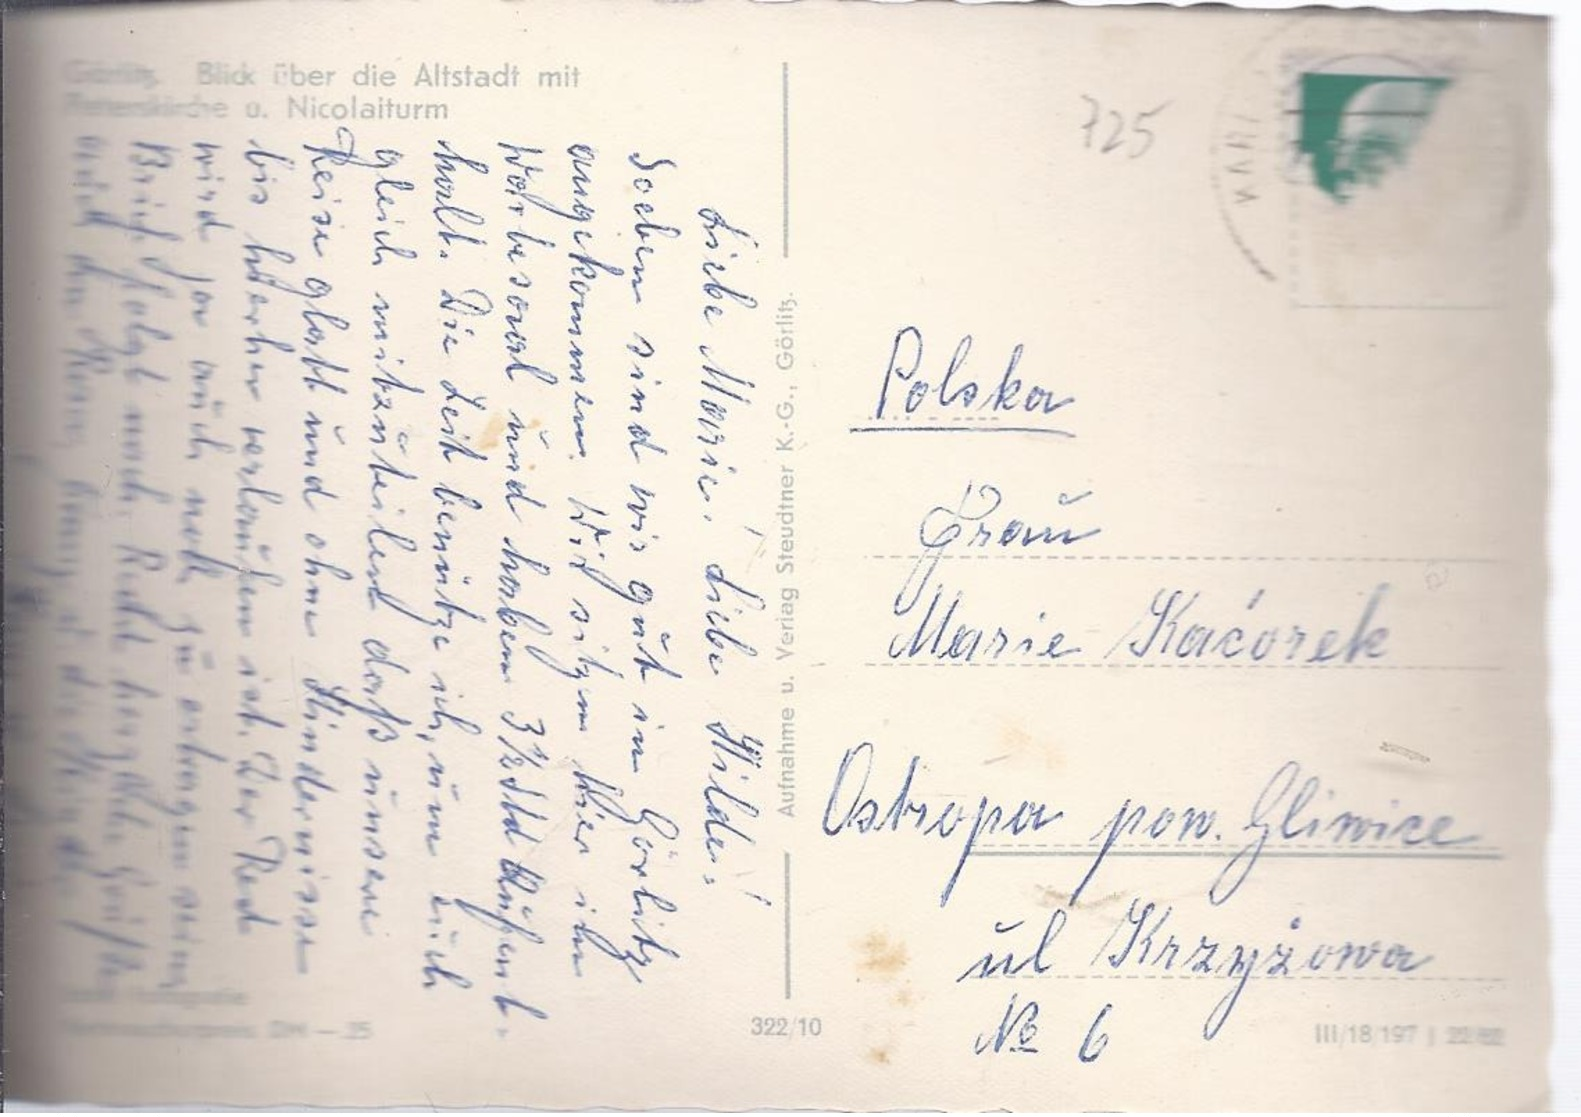 Görlitz. Blick über die Altstadt mit
Peterskirche u. Nicolaiturm
Liebe Marie! Liebe Hilde!
Soeben sind wir gut in Görlitz
angekommen. Wir sitzen hier im
Wartesaal und haben 3½ Std Aufent-
halt. Die Zeit benütze ich, um Euch
gleich mitzuteilen daß unsere
Reise glatt und ohne Hindernisse
bis hierher verlaufen ist. Der Rest
wird ja auch noch zu ertragen sein
Brief folgt nach. Recht herzliche Grüße
auch
Aufnahme u. Verlag Steudtner K.-G., Görlitz.
322/10
DM -.25
725
Polska
Frau
Marie Kaćorek
Ostropa pow. Gliwice
ul Krzyżowa
№ 6
III/18/197